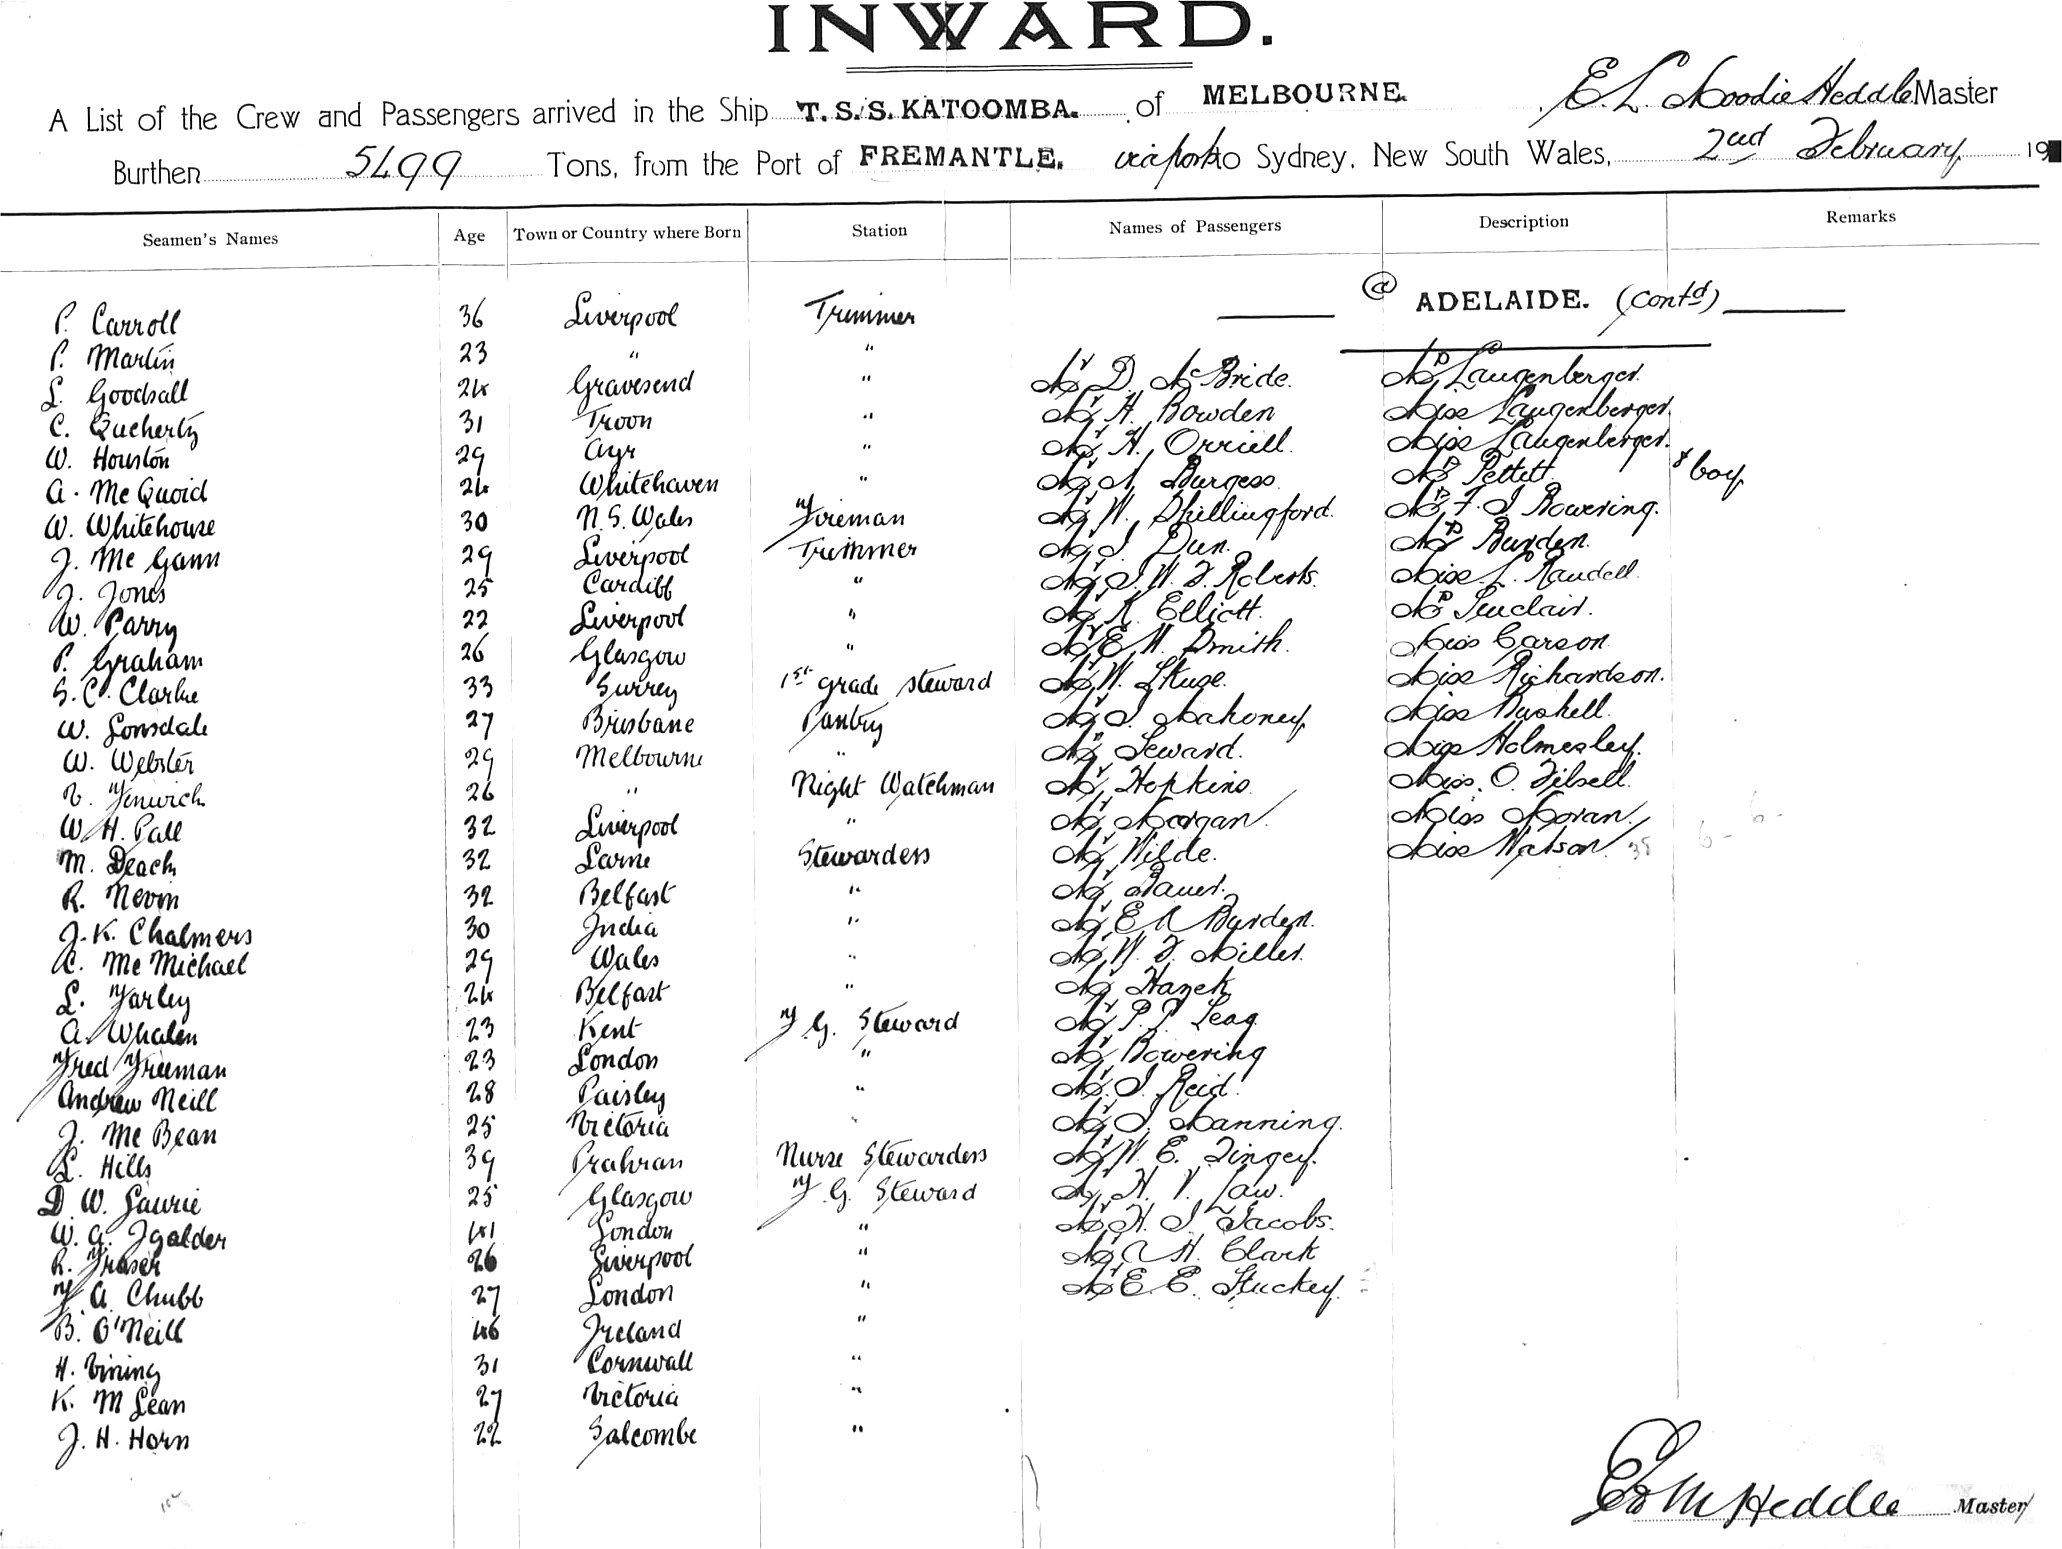 INWARD.
A List of the Crew and Passengers arrived in the Ship T.S.S. KATOOMBA. of MELBOURNE. E. L. Moodie Heddle Master
Burthen 5499 Tons, from the Port of FREMANTLE. via ports to Sydney, New South Wales, 2nd February 19
Seamen's Names Age Town or Country where Born Station Names of Passengers Description Remarks
@ ADELAIDE. (Contd)
P. Carroll 36 Liverpool Trimmer
P. Martin 23 " "
L. Goodsall 24 Gravesend " Mr D. McBride. Mrs Laugenberger.
C. Qucherty 31 Troon " Mr H. Bowden Miss Laugenberger.
W. Houston 29 Ayr " Mr H. Orriell. Miss Laugenberger.
A. McQuoid 24 Whitehaven " Mr A. Burgess. Mrs Pettett. & boy
W. Whitehouse 30 N.S. Wales Fireman Mr W. Shillingford. Mrs F. J. Bowering.
J. McGann 29 Liverpool Trimmer Mr J. Dun. Mrs Burden.
J. Jones 25 Cardiff " Mr J. W. F. Roberts. Miss L. Randell.
W. Parry 22 Liverpool " Mr K. Elliott. Mrs Sinclair.
P. Graham 26 Glasgow " Mr E. W. Smith. Miss Carson.
S. C. Clarke 33 Surrey 1st grade steward Mr W. Skuse. Miss Richardson.
W. Lonsdale 27 Brisbane Pantry Mr J. Mahoney. Miss Baskell.
W. Webster 29 Melbourne " Mr Seward. Miss Holmesley.
V. Fenwick 26 " Night Watchman Mr Hopkins. Miss. O. Filsell.
W. H. Pall 32 Liverpool " Mr Morgan. Miss Moran.
M. Deach 32 Larne Stewardess Mr Wilde. Miss Watson. 38
R. Nevin 32 Belfast " Mr Bauer.
J. K. Chalmers 30 India " Mr E A Burden.
C. McMichael 29 Wales " Mr W. F. Miller.
L. Farley 24 Belfast " Mr Hanek
A. Whalen 23 Kent F. G. Steward Mr P. P. Leag.
Fred Freeman 23 London " Mr Bowering
Andrew Neill 28 Paisley " Mr. J. Reid.
J. McBean 25 Victoria " Mr J. Manning.
L. Hills 39 Prahran Nurse Stewardess Mr W. E. Tingey.
D. W. Laurie 25 Glasgow F. G. Steward Mr H. V. Law.
W. G. Igalder 41 London " Mr H. J. Jacobs.
R. Fraser 26 Liverpool " Mr A H. Clark
F. A. Chubb 27 London " Mr E. E. Stuckey.
B. O'Neill 46 Ireland "
H. Vining 31 Cornwall "
K. McLean 27 Victoria "
J. H. Horn 22 Salcombe "
E L M Heddle Master